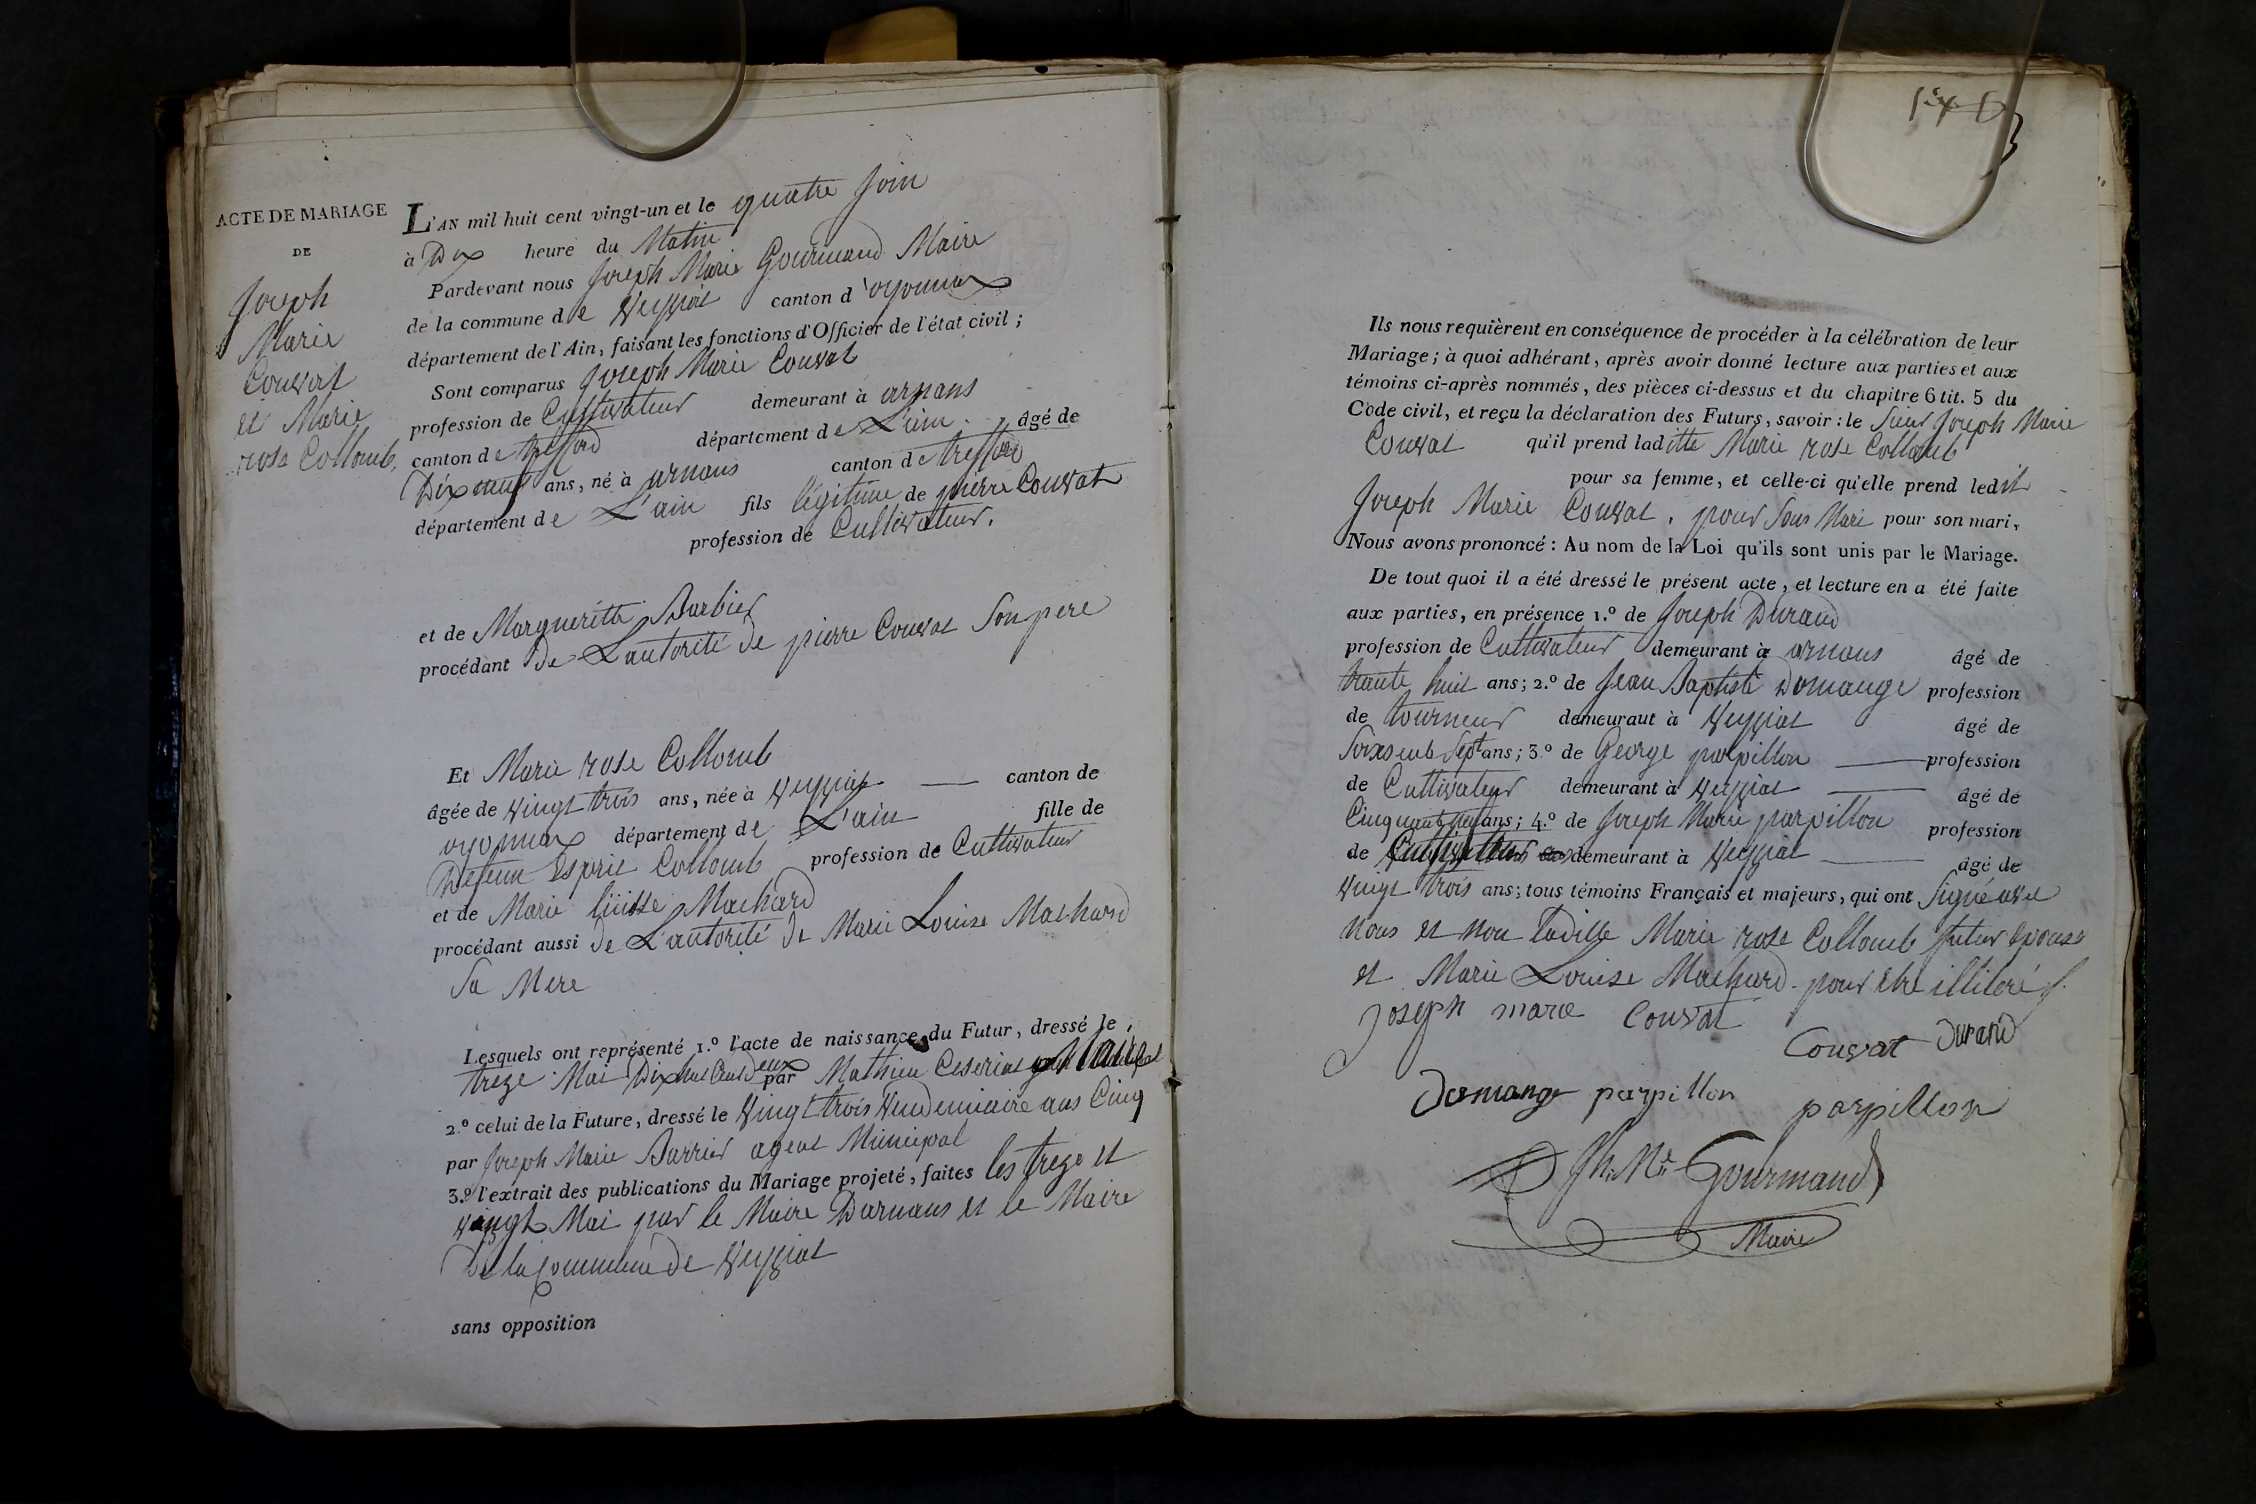 ACTE DE MARIAGE
DE
Joseph
Marie
Couvat
et Marie
rose Collomb
L'AN mil huit cent vingt-un et le quatre Join
à Dix heure du Matin
Pardevant nous Joseph Marie Gourmand Maire
de la commune de Veyziat canton d'oyonnax
département de l'Ain, faisant les fonctions d'Officier de l'état civil ;
Sont comparus Joseph Marie Couvat
profession de Cultivateur demeurant à arnans
canton de trefford département de L'ain âgé de
Dix neuf ans, né à arnans canton de trefford
département de L'ain fils légitime de pierre Couvat
profession de Cultivateur.
et de Margueritte Barbier
procédant de L'autorité de pierre Couvat Son pere
Et Marie rose Collomb
âgée de Vingt trois ans, née à Veyziat canton de
oyonnax département de L'ain fille de
Defunt Esprit Collomb profession de Cultivateur
et de Marie Machard
procédant aussi de L'autorité de Marie Louise Machard
Sa Mere
Lesquels ont représenté 1.º l'acte de naissance du Futur, dressé le
treze Mai Dix huit Cent Deux par Mathieu Ceseriat Maire
2.º celui de la Future, dressé le Vingt trois Vendemiaire ans Cinq
par Joseph Marie Barrier agent Municipal
3.º l'extrait des publications du Mariage projeté, faites les treze et
Vingt Mai par le Maire Darnans et le Maire
De la Commune de Veyziat
sans opposition
Ils nous requièrent en conséquence de procéder à la célébration de leur
Mariage ; à quoi adhérant, après avoir donné lecture aux parties et aux
témoins ci-après nommés, des pièces ci-dessus et du chapitre 6 tit. 5 du
Code civil, et reçu la déclaration des Futurs, savoir : le Sieur Joseph Marie
Couvat qu'il prend laditte Marie rose Collomb
pour sa femme, et celle-ci qu'elle prend ledit
Joseph Marie Couvat. pour Sons Mari pour son mari,
Nous avons prononcé : Au nom de la Loi qu'ils sont unis par le Mariage.
De tout quoi il a été dressé le présent acte, et lecture en a été faite
aux parties, en présence 1.º de Joseph Durand
profession de Cultivateur demeurant à arnans âgé de
trante huit ans ; 2.º de Jean Baptiste Domange profession
de tourneur demeurant à Veyziat âgé de
Sept ans ; 3.º de George parpillon profession
de Cultivateur demeurant à Veyziat âgé de
ans ; 4.º de Joseph Marie parpillon profession
de Cultivateur demeurant à Veyziat âgé de
Vingt trois ans ; tous témoins Français et majeurs, qui ont Signé avec
nous et non laditte Marie rose Collomb futur Epouse
et Marie Louise Machard. pour etre illiteré
Joseph marie Couvat
Couvat Durand
Domange parpillon parpillon
Jh. Mie Gourmand
Maire